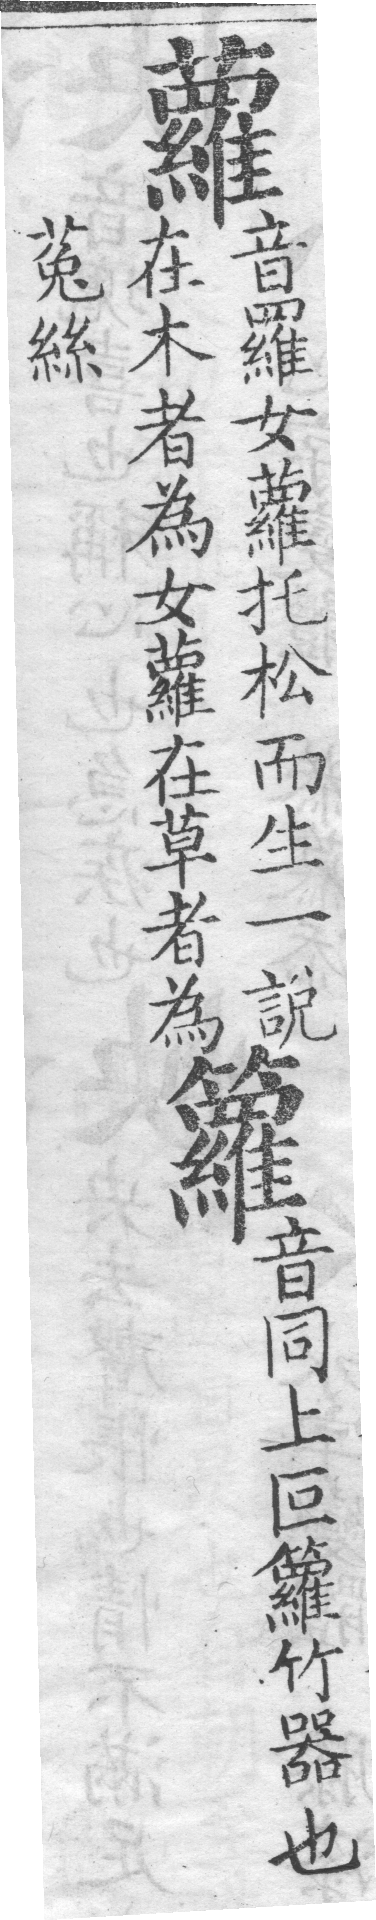 蘿音羅女蘿托松而生一說
在木者為女蘿在草者為
菟絲
籮音同上叵籮竹器也